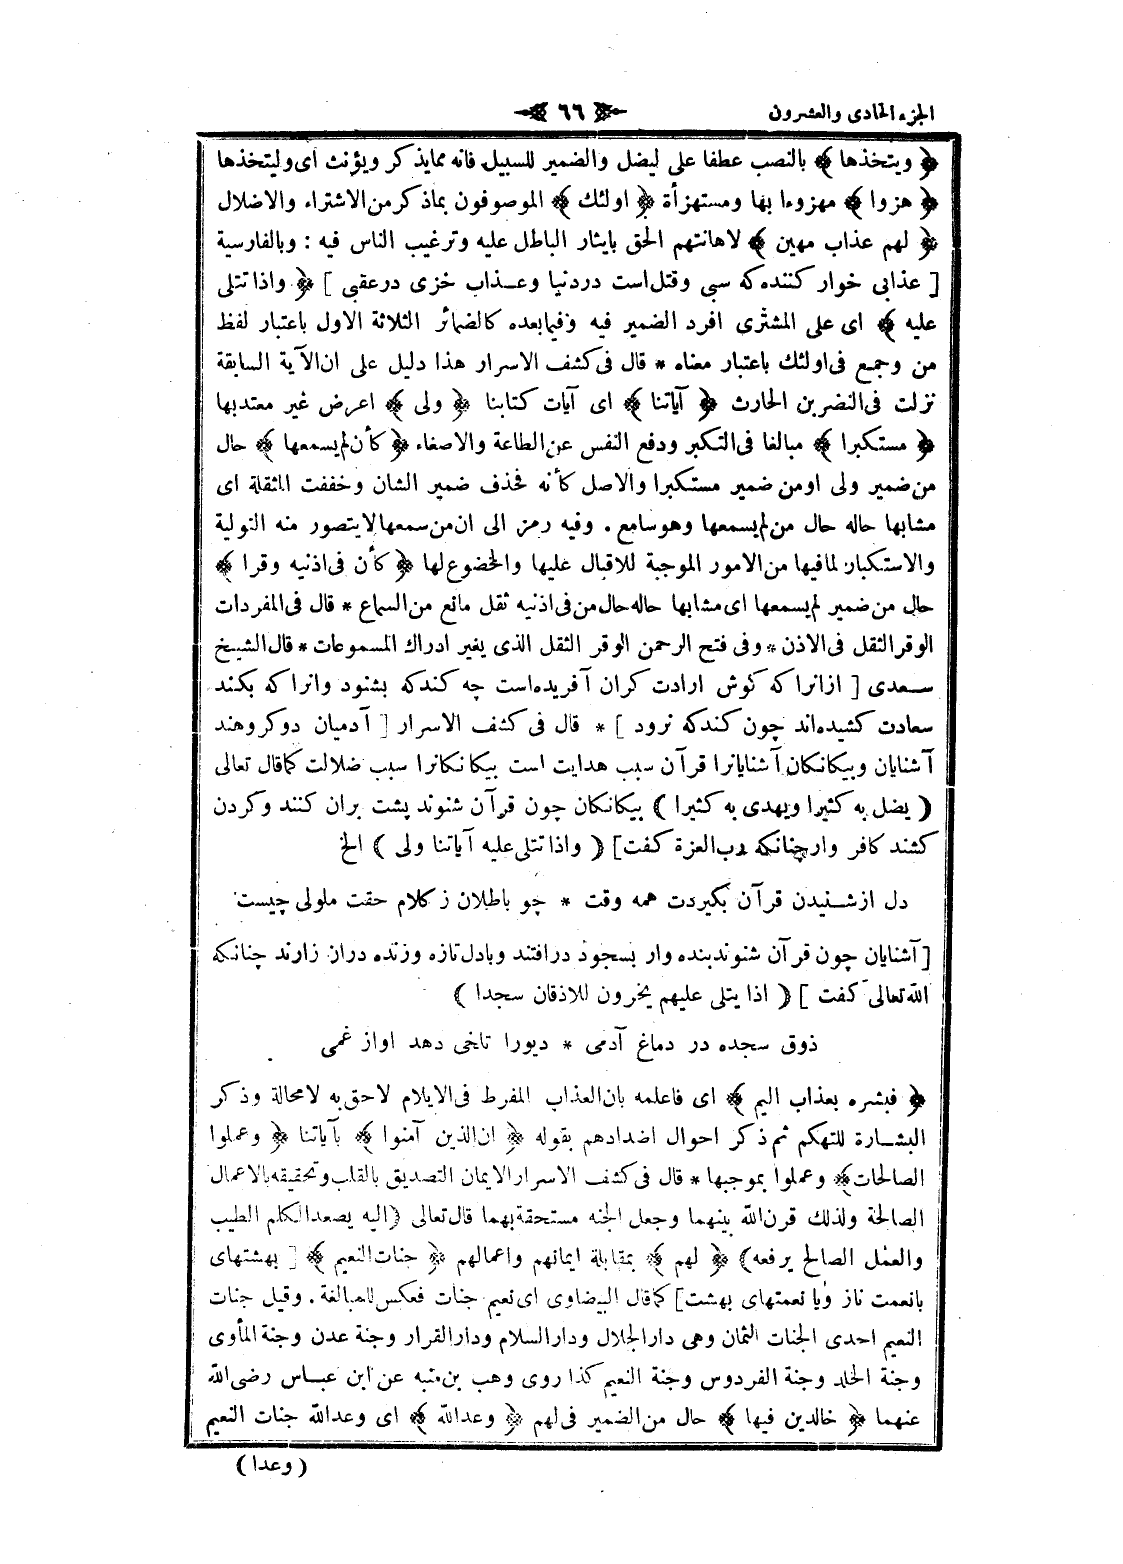 الجزء الحادى والعشرون
٦٦
﴿ ويتخذها ﴾ بالنصب عطفا على ليضل والضمير للسبيل فانه ممايذكر ويؤنث اى وليتخذها
﴿ هزوا ﴾ مهزوءا بها ومستهزأة ﴿ اولئك ﴾ الموصوفون بماذكر من الاشتراء والاضلال
﴿ لهم عذاب مهين ﴾ لاهانتهم الحق بايثار الباطل عليه وترغيب الناس فيه : وبالفارسية
[ عذابى خوار كننده كه سبى وقتل است دردنيا وعذاب خزى درعقبى ] ﴿ واذا تتلى
عليه ﴾ اى على المشترى افرد الضمير فيه وفيما بعده كالضمائر الثلاثة الاول باعتبار لفظ
من وجمع فى اولئك باعتبار معناه * قال فى كشف الاسرار هذا دليل على ان الآية السابقة
نزلت فى النضر بن الحارث ﴿ آياتنا ﴾ اى آيات كتابنا ﴿ ولى ﴾ اعرض غير معتدبها
﴿ مستكبرا ﴾ مبالغا فى التكبر ودفع النفس عن الطاعة والاصغاء ﴿ كأن لم يسمعها ﴾ حال
من ضمير ولى اومن ضمير مستكبرا والاصل كأنه فحذف ضمير الشان وخففت المثقلة اى
مشابها حاله حال من لم يسمعها وهو سامع . وفيه رمز الى ان من سمعها لايتصور منه التولية
والاستكبار لمافيها من الامور الموجبة للاقبال عليها والخضوع لها ﴿ كأن فى اذنيه وقرا ﴾
حال من ضمير لم يسمعها اى مشابها حاله حال من فى اذنيه ثقل مانع من السماع * قال فى المفردات
الوقر الثقل فى الاذن * وفى فتح الرحمن الوقر الثقل الذى يغير ادراك المسموعات * قال الشيخ
سعدى [ ازانرا كه كوش ارادت كران آفريده است چه كند كه بشنود وانرا كه بكند
سعادت كشيده اند چون كند كه نرود ] * قال فى كشف الاسرار [ آدميان دو كروهند
آشنايان وبيكانكان آشنايانرا قرآن سبب هدايت است بيكانكانرا سبب ضلالت كماقال تعالى
( يضل به كثيرا ويهدى به كثيرا ) بيكانكان چون قرآن شنوند پشت بران كنند وكردن
كشند كافر وار چنانكه رب العزة كفت] ( واذا تتلى عليه آياتنا ولى ) الخ
دل از شنيدن قرآن بكيردت همه وقت * چو باطلان ز كلام حقت ملولى چيست
[ آشنايان چون قرآن شنوند بنده وار بسجود درافتند وبادل تازه وزنده دران زارند چنانكه
الله تعالى كفت ] ( اذا يتلى عليهم يخرون للاذقان سجدا )
ذوق سجده در دماغ آدمى * ديورا تلخى دهد اواز غمى
﴿ فبشره بعذاب اليم ﴾ اى فاعلمه بان العذاب المفرط فى الايلام لاحق به لامحالة وذكر
البشارة للتهكم ثم ذكر احوال اضدادهم بقوله ﴿ ان الذين آمنوا ﴾ بآياتنا ﴿ وعملوا
الصالحات﴾ وعملوا بموجبها * قال فى كشف الاسرار الايمان التصديق بالقلب وتحقيقه بالاعمال
الصالحة ولذلك قرن الله بينهما وجعل الجنه مستحقة بهما قال تعالى ( اليه يصعد الكلم الطيب
والعمل الصالح يرفعه) ﴿ لهم ﴾ بمقابلة ايمانهم واعمالهم ﴿ جنات النعيم ﴾ [ بهشتهاى
بانعمت ناز ويا نعمتهاى بهشت] كماقال البيضاوى اى نعيم جنات فعكس للمبالغة . وقيل جنات
النعيم احدى الجنات الثمان وهى دار الجلال ودار السلام ودار القرار وجنة عدن وجنة المأوى
وجنة الخلد وجنة الفردوس وجنة النعيم كذا روى وهب بن منبه عن ابن عباس رضى الله
عنهما ﴿ خالدين فيها ﴾ حال من الضمير فى لهم ﴿ وعدالله ﴾ اى وعدالله جنات النعيم
( وعدا )